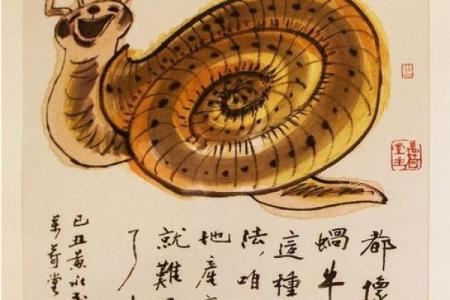 都
蝸牛
這種
法咱
地產
就難
了
己丑黃永
萬荷堂